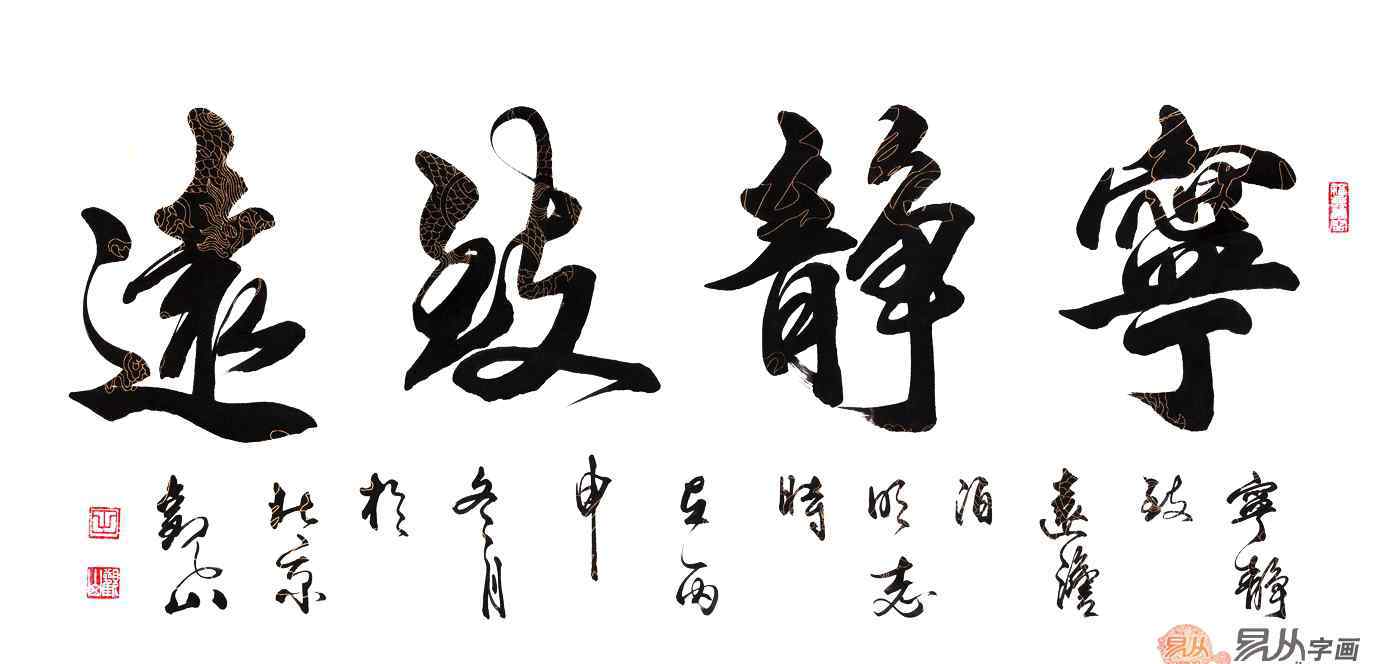 寧靜致遠
寧靜
致
遠澹
泊
明志
時
在丙
申
冬月
於
北京
山
易从
易从字画